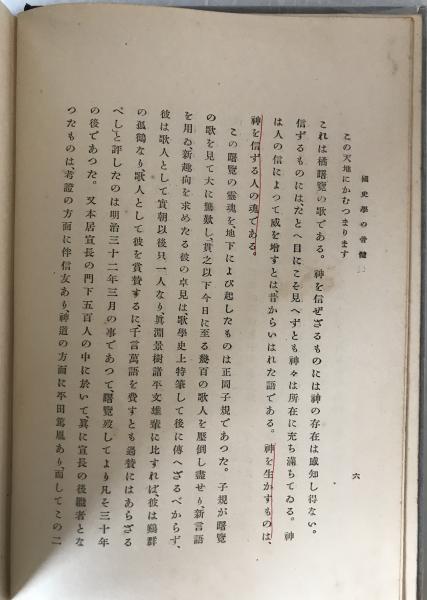 國史學の骨髓
六
この天地にかむつまります
これは橘曙覽の歌である。神を信ぜざるものには神の存在は感知し得ない。
信ずるものには、たとへ目にこそ見へずとも神々は所在に充ち滿ちてゐる。神
は人の信によつて威を増すとは、昔からいはれた語である。神を生かすものは、
神を信ずる人の魂である。
この曙覽の靈魂を地下によび起したものは正岡子規であつた。子規が曙覽
の歌を見て大に驚歎し、貫之以下今日に至る幾百の歌人を壓倒し盡せり、新言語
を用ゐ、新趣向を求めたる彼の卓見は、歌學史上特筆して後に傳へざるべからず、
彼は歌人として實朝以後只一人なり、眞淵景樹諸平文雄輩に比すれば、彼は鷄群
の孤鶴なり歌人として彼を賞贊するに千言萬語を費すとも過贊にはあらざる
べし」と評したのは明治三十二年三月の事であつて、曙覽歿してより凡そ三十年
の後であつた。又本居宣長の門下五百人の中に於いて、眞に宣長の後繼者とな
つたものは、考證の方面に伴信友あり、神道の方面に平田篤胤あり、而してこの二